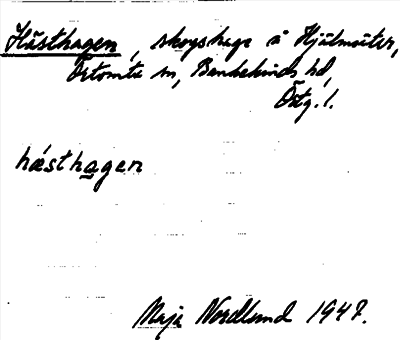 Hästhagen, skogshage å Hjälmsäter,
Örtomta sn, Bankekinds hd,
Östg. l.
hæsthagen
Maja Nordlund 1947.